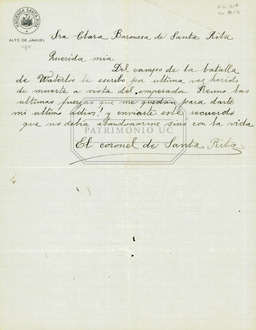 ALTO DE JAHUEL
Sra Clara Baronesa de Santa Rita
Querida mia
Del campo de la batalla
de Waterloo le escribo por ultima vez herido
de muerte a vista del emperador Reuno las
ultimas fuerzas que me quedan para darte
mi ultimo adios! y enviarte este recuerdo
que no debia abandonarme sino con la vida
El coronel de Santa Rita
PATRIMONIO UC